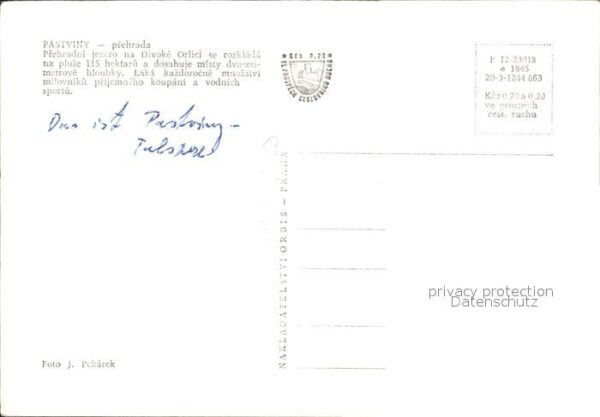 PASTVINY — přehrada
Přehradní jezero na Divoké Orlici se rozkládá
na ploše 115 hektarů a dosahuje místy dvaceti-
metrové hloubky. Láká každoročně množství
milovníků příjemného koupání a vodních
sportů.
Das ist Pastviny –
Kčs 0,20
VE PROSPĚCH CESTOVNÍHO RUCHU
F 12-23918
e 1845
20-3-1244 863
Kčs 0,70 a 0,20
ve prospěch
cest. ruchu
NAKLADATELSTVÍ ORBIS — PRAHA
privacy protection
Datenschutz
Foto J. Pekárek